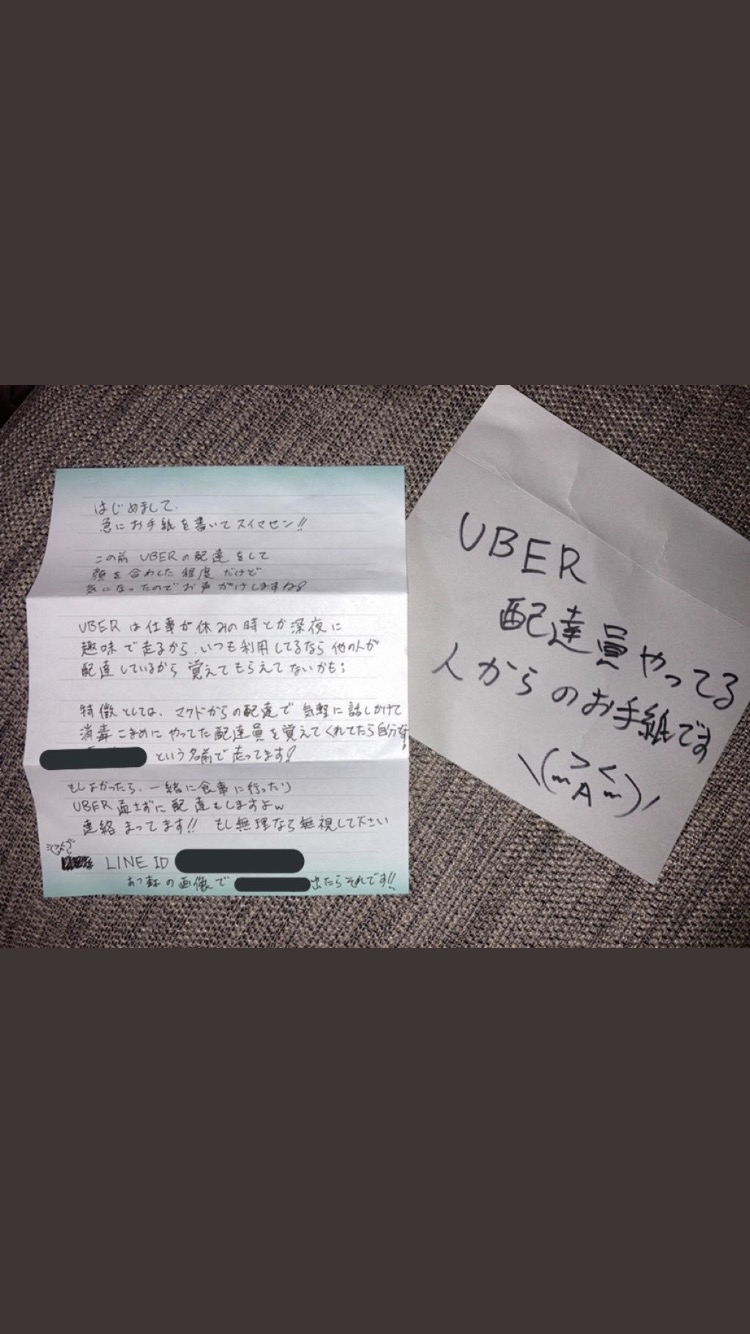 はじめまして。
急にお手紙を書いてスイマセン!!
この前 UBERの配達をして
顔を合わした程度だけど
気になったのでお声がけしますね!
UBERは仕事が休みの時とか深夜に
趣味で走るから、いつも利用してるなら他の人が
配達しているから覚えてもらえてないかも;
特徴としては、マクドからの配達で気軽に話しかけて
消毒こまめにやってた配達員を覚えてくれてたら自分です
という名前で走ってます!
もしよかったら、一緒に食事に行ったり
UBER通さずに配達もしますよw
連絡まってます!! もし無理なら無視して下さい
LINE ID
の画像で 出たらそれです!!
UBER
配達員やってる
人からのお手紙です
\(>A<)/